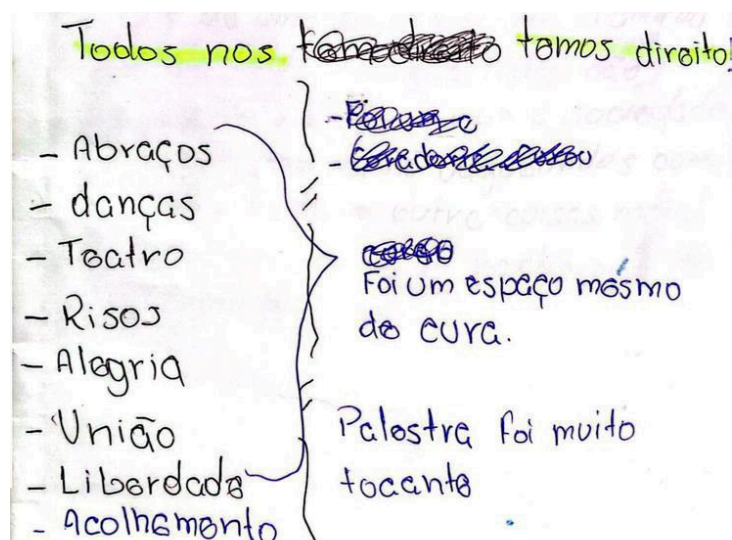 Todos nos temos direito!
- Abraços
- danças
- Teatro
- Risos
- Alegria
- União
- Liberdade
- Acolhemento
Foi um espaço mesmo
de cura.
Palestra foi muito
tocante